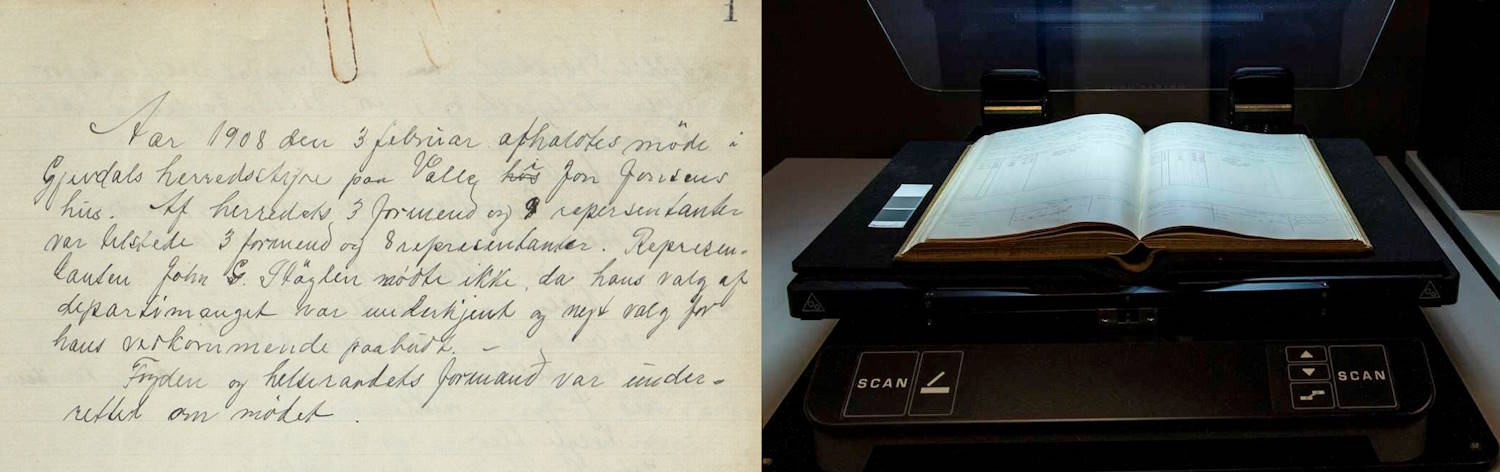 1
Aar 1908 den 3 februar afholdtes møde i
Gjevdals herredsstyre paa Valle i Jon Jonsens
hus. Af herredets 3 formend og 9 repersentanter
var tilstede 3 formend og 8 representanter. Represen-
tanten John G. mødte ikke, da hans valg af
departimanget var underkjent og nyt valg for
hans vedkommende paabudt. —
Fogden og helseraadets formand var under-
rettet om mødet.
SCAN
SCAN